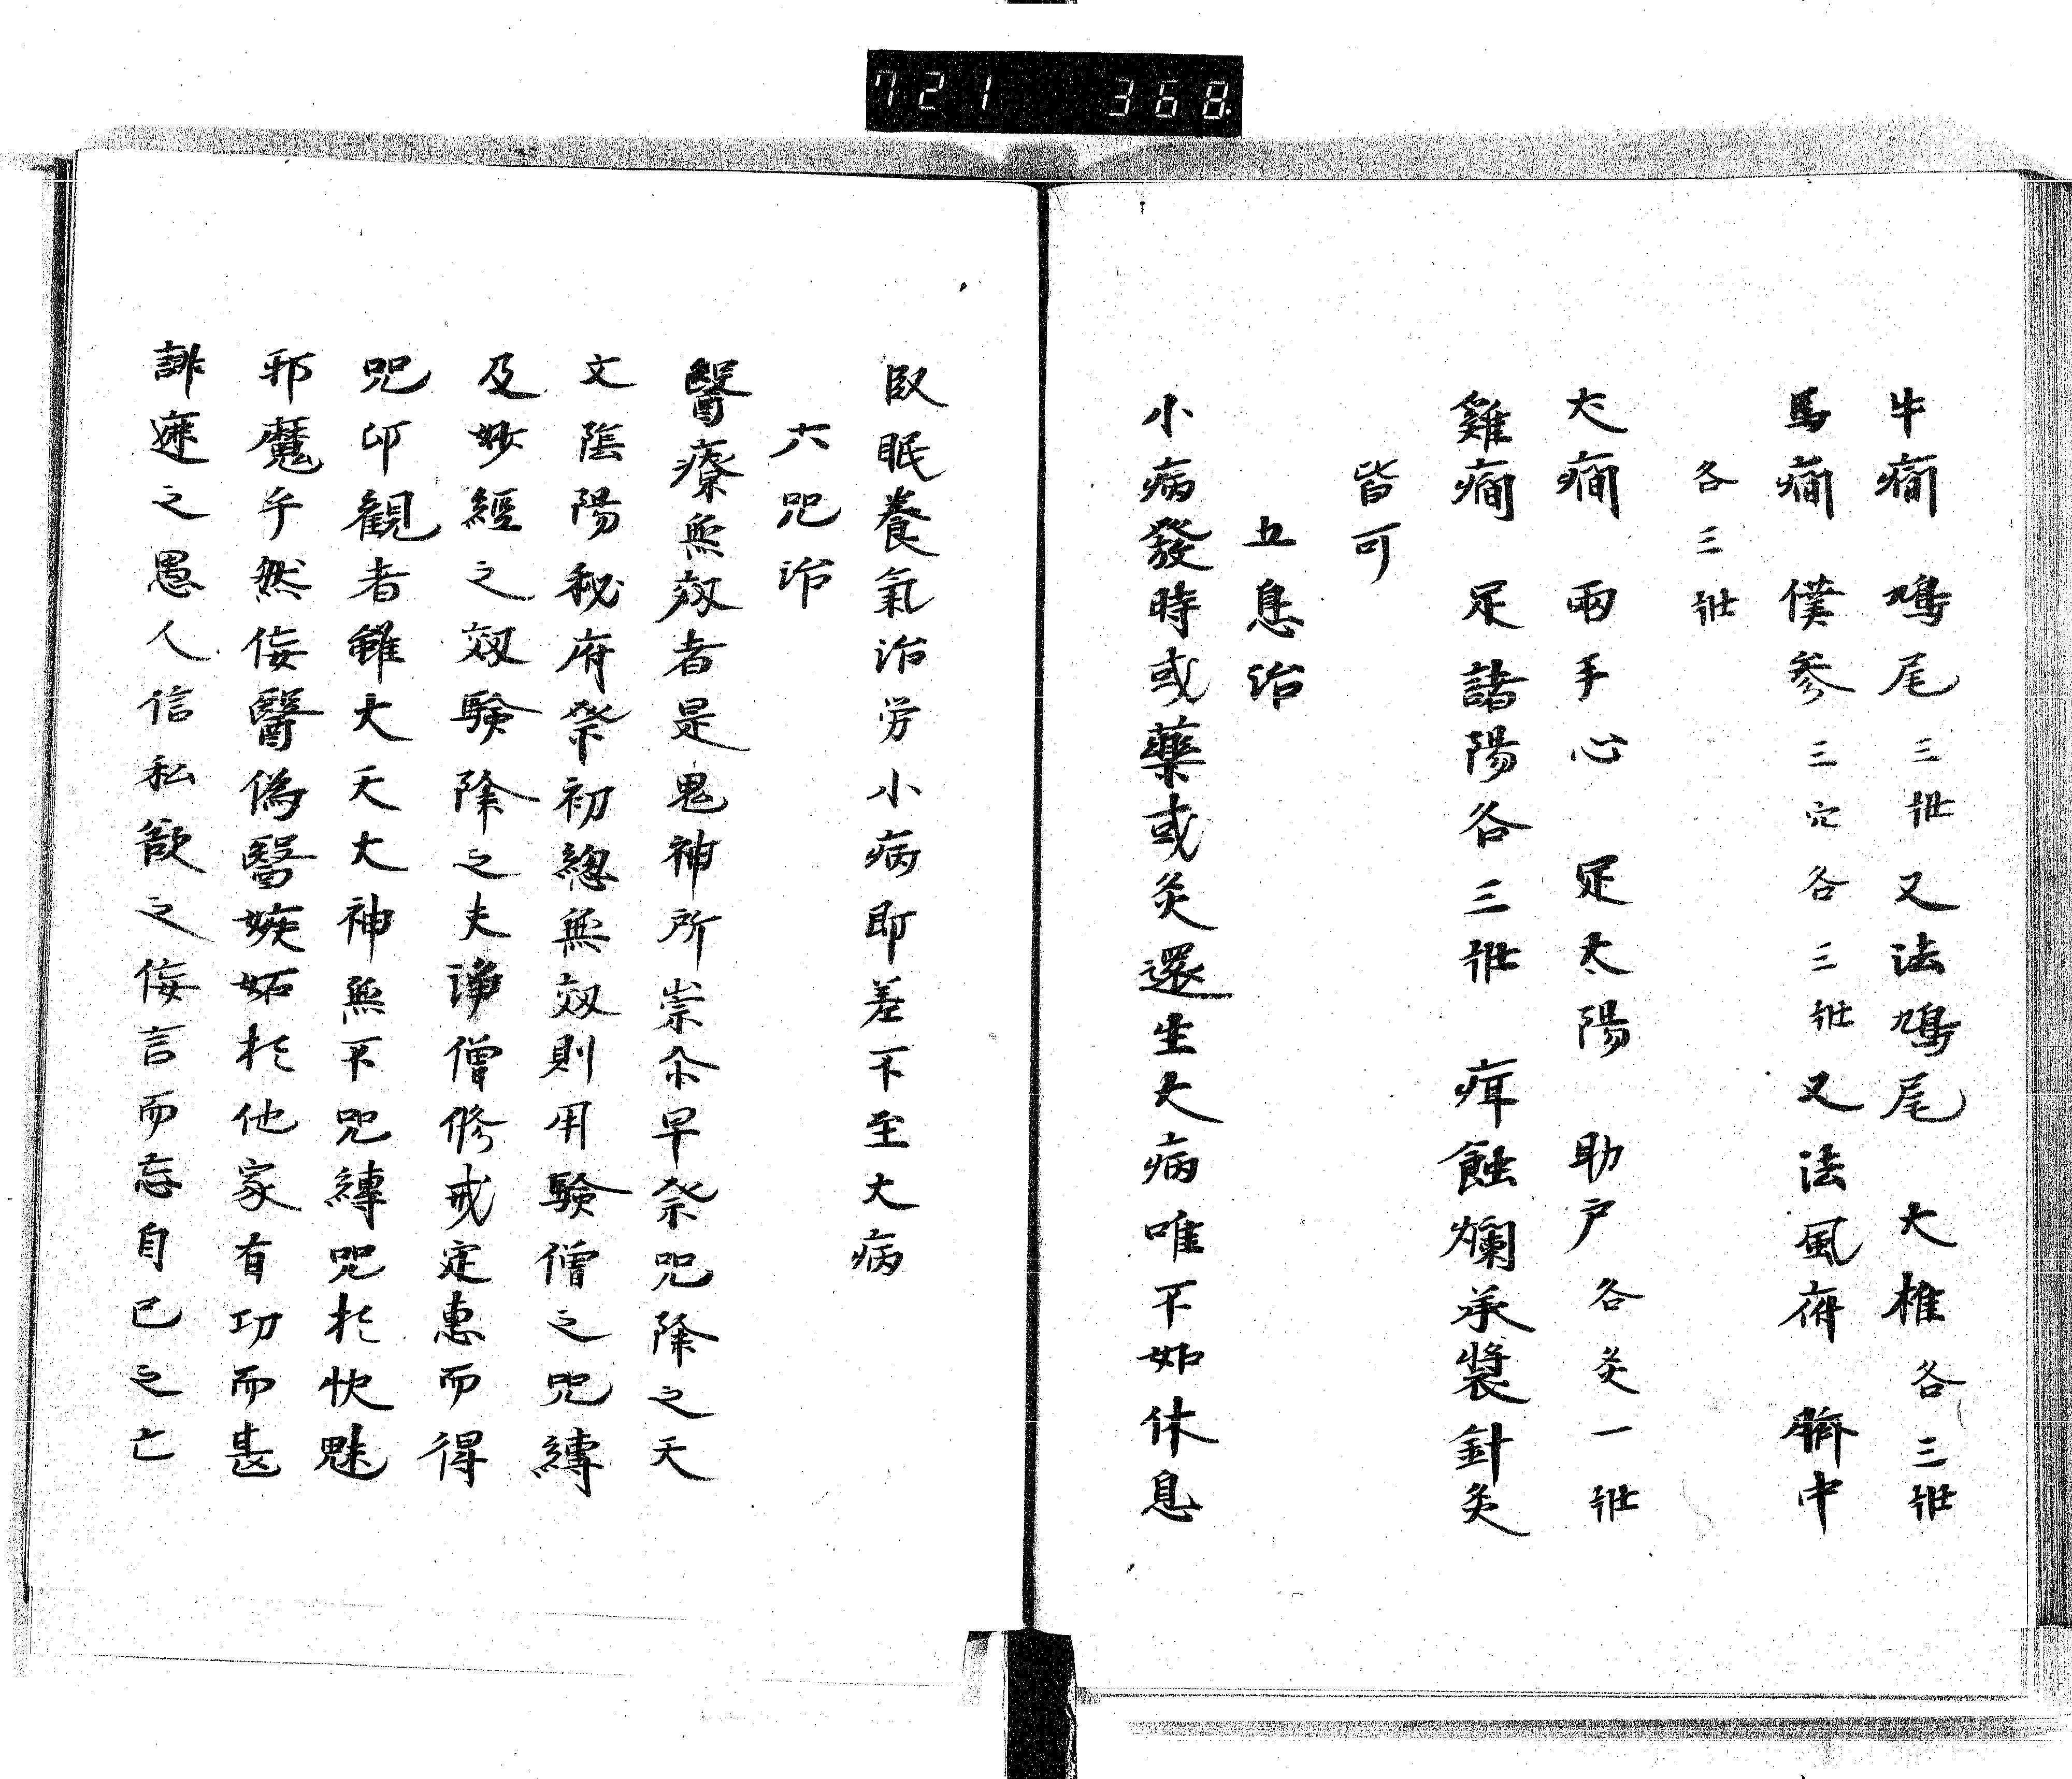 721 368.
牛癎 鳩尾三壯又法鳩尾 大椎各三壯
馬癎 僕參三穴各三壯又法風府 臍中
各三壯
犬癎 兩手心 足太陽 助户各灸一壯
雞癎 足諸陽各三壯 疳蝕爛承漿針灸
皆可
五息治
小病發時或藥或灸還生大病唯不如休息
臥眠養氣治労小病即差不至大病
六咒治
醫療無效者是鬼神所祟尒早祭咒降之天
文陰陽秘府祭初總無效則用驗僧之咒縛
及妙經之效驗降之夫諍僧修戒定惠而得
咒印觀者雖大天大神無不咒縛咒於快魅
邪魔乎然侫醫偽醫嫉妬於他家有功而甚
誹遮之愚人信私欲之侫言而忘自己之亡